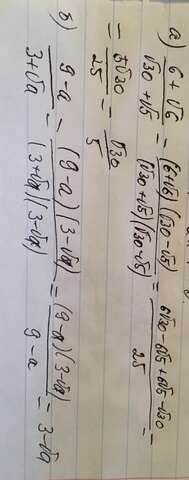 а) 6+√6 / √30+√5 = (6+√6)(√30-√5) / (√30+√5)(√30-√5) = 6√30-6√5+6√5-√30 / 25 =
= 5√30 / 25 = √30 / 5
б) 9-a / 3+√a = (9-a)(3-√a) / (3+√a)(3-√a) = (9-a)(3-√a) / 9-a = 3-√a